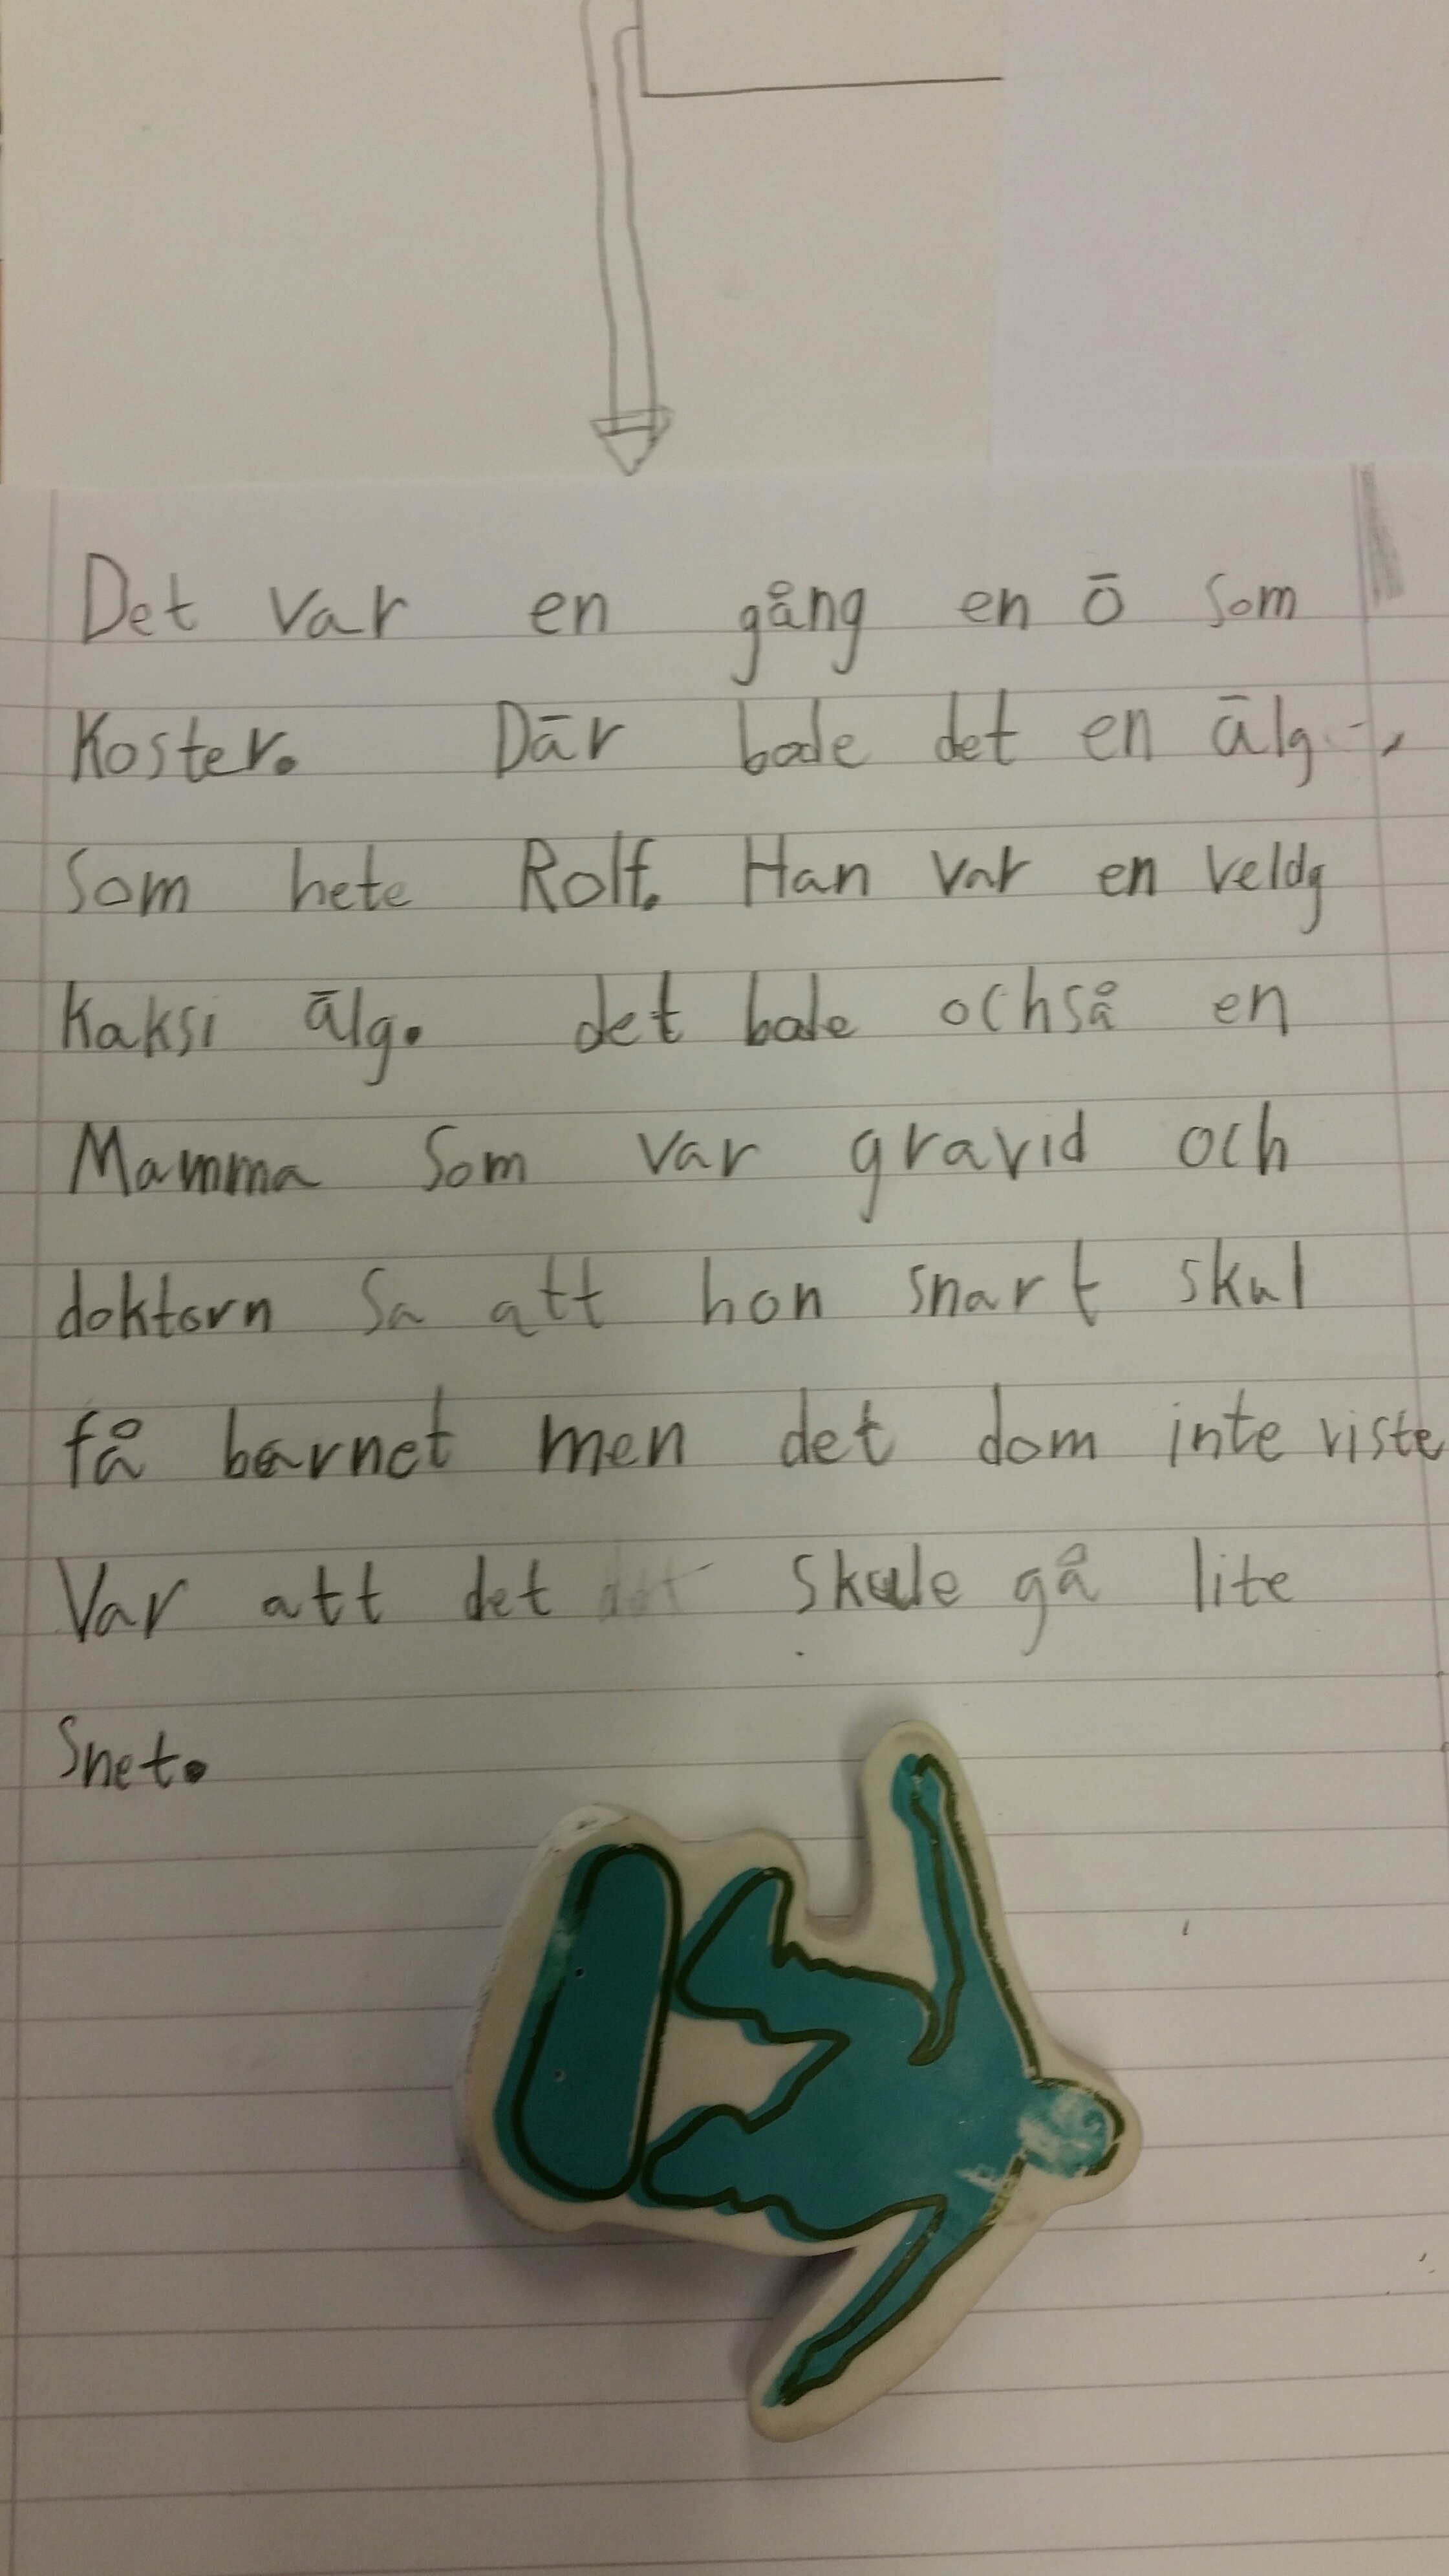 Det var en gång en ö som
Koster. Där bode det en älg
som hete Rolf. Han var en veldg
Kaksi älg. det bode ochså en
Mamma som var gravid och
doktorn sa att hon snart skul
få barnet men det dom inte viste
Var att det skule gå lite
snet.